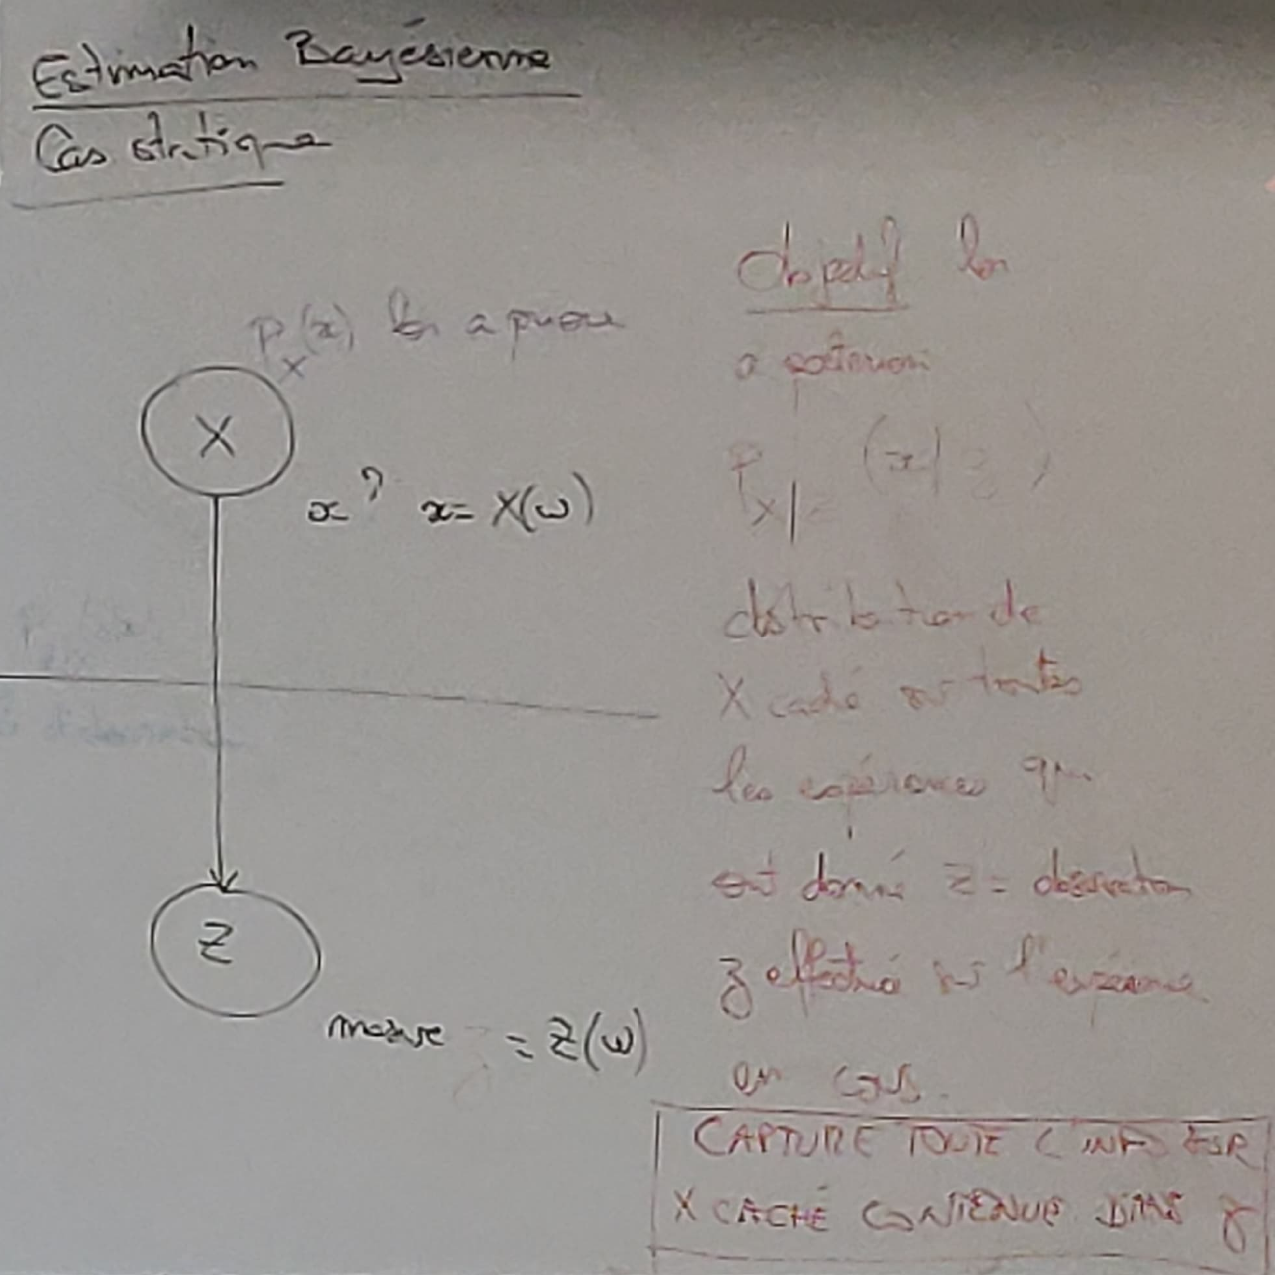 Estimation Bayésienne
Cas statique
p_X(x) loi a priori
X
x ? x = X(ω)
Z
mesure = Z(ω)
Objectif loi
a posteriori
p_X| (x|z)
distribution de
X caché sur toutes
les expériences qui
ont donné Z = observation
z effectué sur l'expérience
en cours.
CAPTURE TOUTE L'INFO SUR
X CACHÉ CONTENUE DANS z